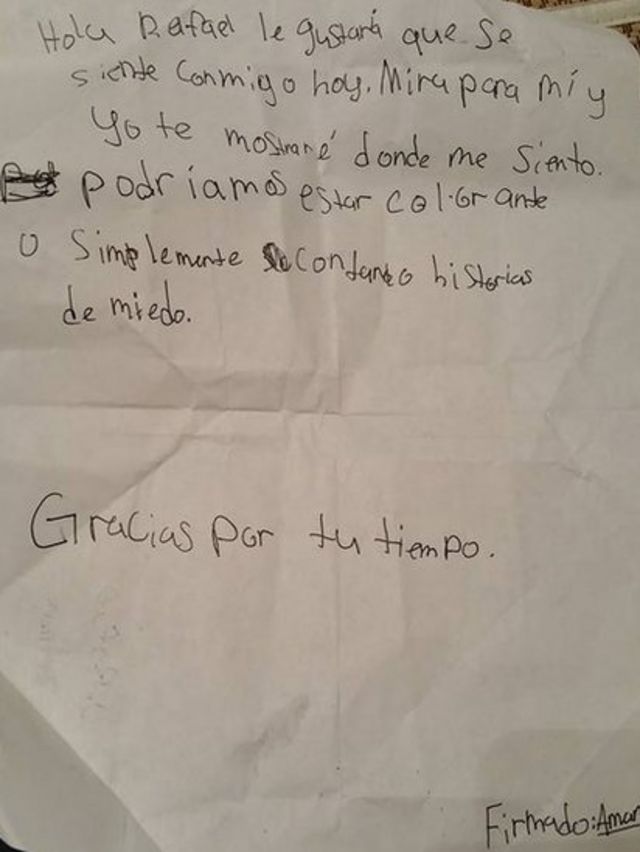 Hola Rafael le gustará que se
siente Conmigo hoy. Mira para mí y
Yo te mostraré donde me siento.
podriamos estar col.Grante
O Simplemente contando historias
de miedo.
Gracias por tu tiempo.
Firmado: Amar